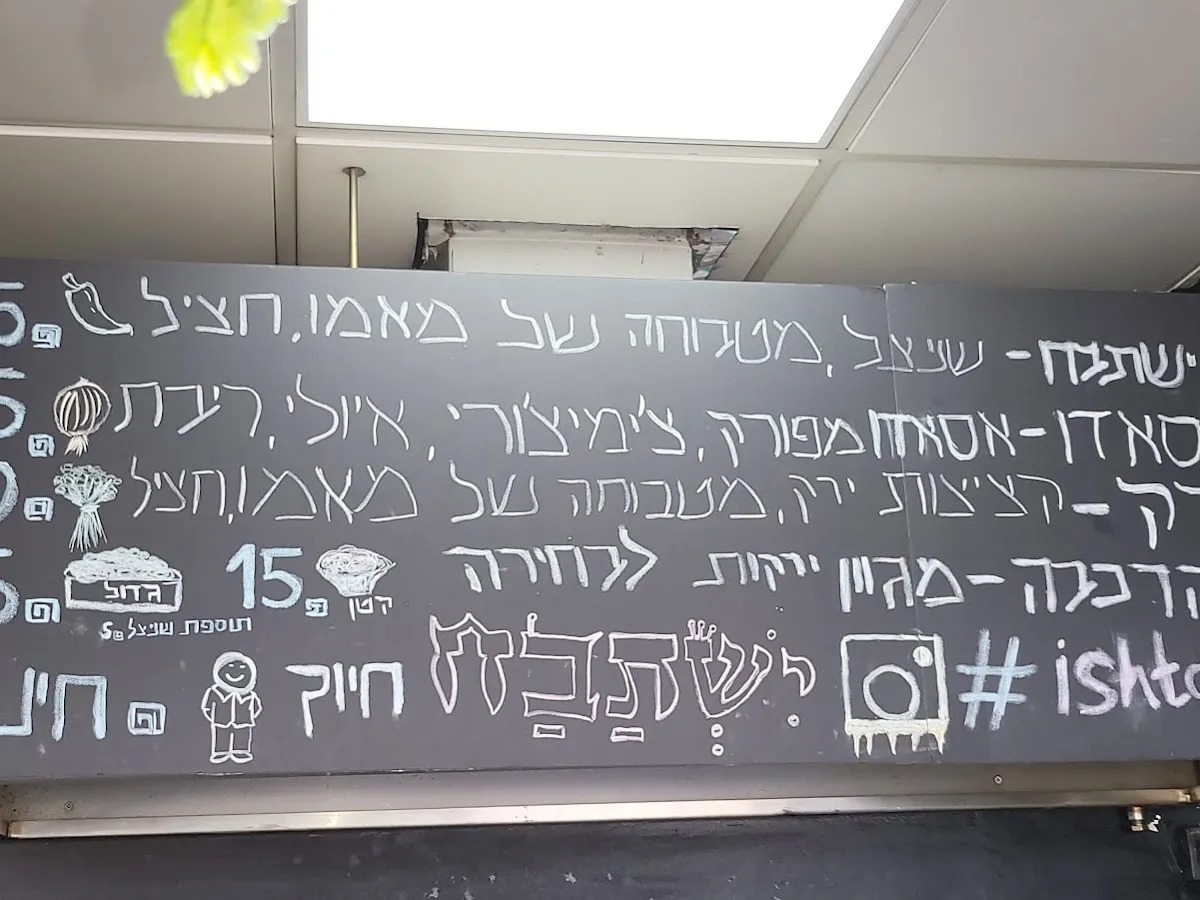 ישתבח - שניצל, מטבוחה של מאמו, חציל
סאדו - אסאדו מפורק, צ'ימיצ'ורי, איולי, ריבת
רק - קציצות ירק, מטבוחה של מאמו, חציל
הדכנה - מגיון ירקות לבחירה קטן 15. גדול
תוספת שניצל 5
#ishta יִשְׁתַּבַּח חיוך חינ